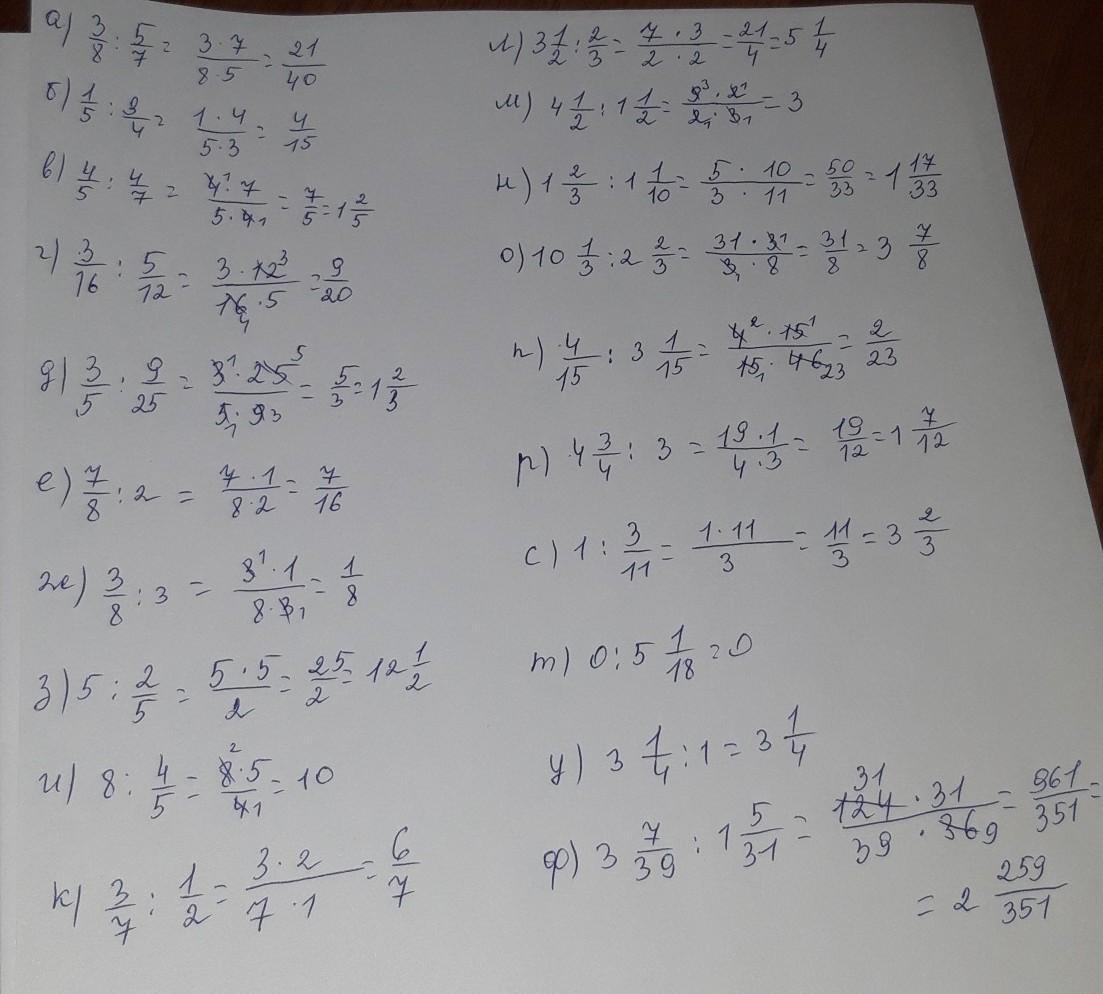 а) 3/8 : 5/7 = 3·7/8·5 = 21/40
б) 1/5 : 3/4 = 1·4/5·3 = 4/15
в) 4/5 : 4/7 = 4¹·7/5·4₁ = 7/5 = 1 2/5
г) 3/16 : 5/12 = 3·12³/16₄·5 = 9/20
д) 3/5 : 9/25 = 3¹·25⁵/5₁·9₃ = 5/3 = 1 2/3
е) 7/8 : 2 = 7·1/8·2 = 7/16
ж) 3/8 : 3 = 3¹·1/8·3₁ = 1/8
з) 5 : 2/5 = 5·5/2 = 25/2 = 12 1/2
и) 8 : 4/5 = 8²·5/4₁ = 10
к) 3/7 : 1/2 = 3·2/7·1 = 6/7
л) 3 1/2 : 2/3 = 7·3/2·2 = 21/4 = 5 1/4
м) 4 1/2 : 1 1/2 = 9³·2¹/2₁·3₁ = 3
н) 1 2/3 : 1 1/10 = 5·10/3·11 = 50/33 = 1 17/33
о) 10 1/3 : 2 2/3 = 31·3¹/3₁·8 = 31/8 = 3 7/8
п) 4/15 : 3 1/15 = 4²·15¹/15₁·46₂₃ = 2/23
р) 4 3/4 : 3 = 19·1/4·3 = 19/12 = 1 7/12
с) 1 : 3/11 = 1·11/3 = 11/3 = 3 2/3
т) 0 : 5 1/18 = 0
у) 3 1/4 : 1 = 3 1/4
ф) 3 7/39 : 1 5/31 = 124³¹·31/39·36₉ = 961/351 =
= 2 259/351